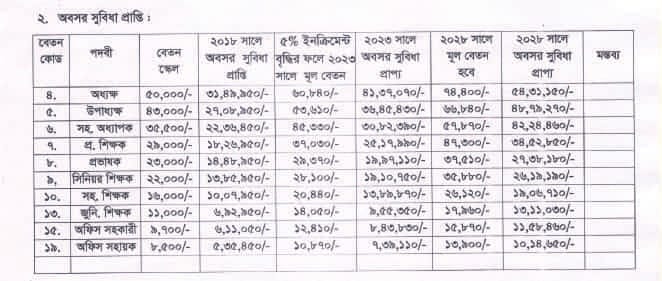 ২. অবসর সুবিধা প্রাপ্তি :
বেতন কোড | পদবী | বেতন স্কেল | ২০১৮ সালে অবসর সুবিধা প্রাপ্তি | ৫% ইনক্রিমেন্ট বৃদ্ধির ফলে ২০২৩ সালে মূল বেতন | ২০২৩ সালে অবসর সুবিধা প্রাপ্য | ২০২৮ সালে মূল বেতন হবে | ২০২৮ সালে অবসর সুবিধা প্রাপ্য | মন্তব্য
৪. অধ্যক্ষ ৫০,০০০/- ৩১,৪৯,৯৫০/- ৬০,৮৪০/- ৪১,৩৭,০৭০/- ৭৪,৪০০/- ৫৪,৩১,১৫০/-
৫. উপাধ্যক্ষ ৪৩,০০০/- ২৭,০৮,৯৫০/- ৫৩,৬১০/- ৩৬,৪৫,৪৩০/- ৬৬,৮৪০/- ৪৮,৭৯,২৭০/-
৬. সহ. অধ্যাপক ৩৫,৫০০/- ২২,৩৬,৪৫০/- ৪৫,৩৩০/- ৩০,৮২,৩৯০/- ৫৭,৮৭০/- ৪২,২৪,৪৬০/-
৭. প্র. শিক্ষক ২৯,০০০/- ১৮,২৬,৯৫০/- ৩৭,০৩০/- ২৫,১৭,৯৯০/- ৪৭,৩০০/- ৩৪,৫২,৮৫০/-
৮. প্রভাষক ২৩,০০০/- ১৪,৪৮,৯৫০/- ২৯,৩৭০/- ১৯,৯৭,১১০/- ৩৭,৫১০/- ২৭,৩৮,১৮০/-
৯. সিনিয়র শিক্ষক ২২,০০০/- ১৩,৮৫,৯৫০/- ২৮,১০০/- ১৯,১০,৭৫০/- ৩৫,৮৮০/- ২৬,১৯,১৯০/-
১০. সহ. শিক্ষক ১৬,০০০/- ১০,০৭,৯৫০/- ২০,৪৪০/- ১৩,৮৯,৮৭০/- ২৬,১২০/- ১৯,০৬,৭১০/-
১৩. জুনি. শিক্ষক ১১,০০০/- ৬,৯২,৯৫০/- ১৪,০৫০/- ৯,৫৫,৩৫০/- ১৭,৯৬০/- ১৩,১১,০৩০/-
১৫. অফিস সহকারী ৯,৭০০/- ৬,১১,০৫০/- ১২,৪১০/- ৮,৪৩,৮৩০/- ১৫,৮৭০/- ১১,৫৮,৪৬০/-
১৯. অফিস সহায়ক ৮,৫০০/- ৫,৩৫,৪৫০/- ১০,৮৭০/- ৭,৩৯,১১০/- ১৩,৯০০/- ১০,১৪,৬৫০/-